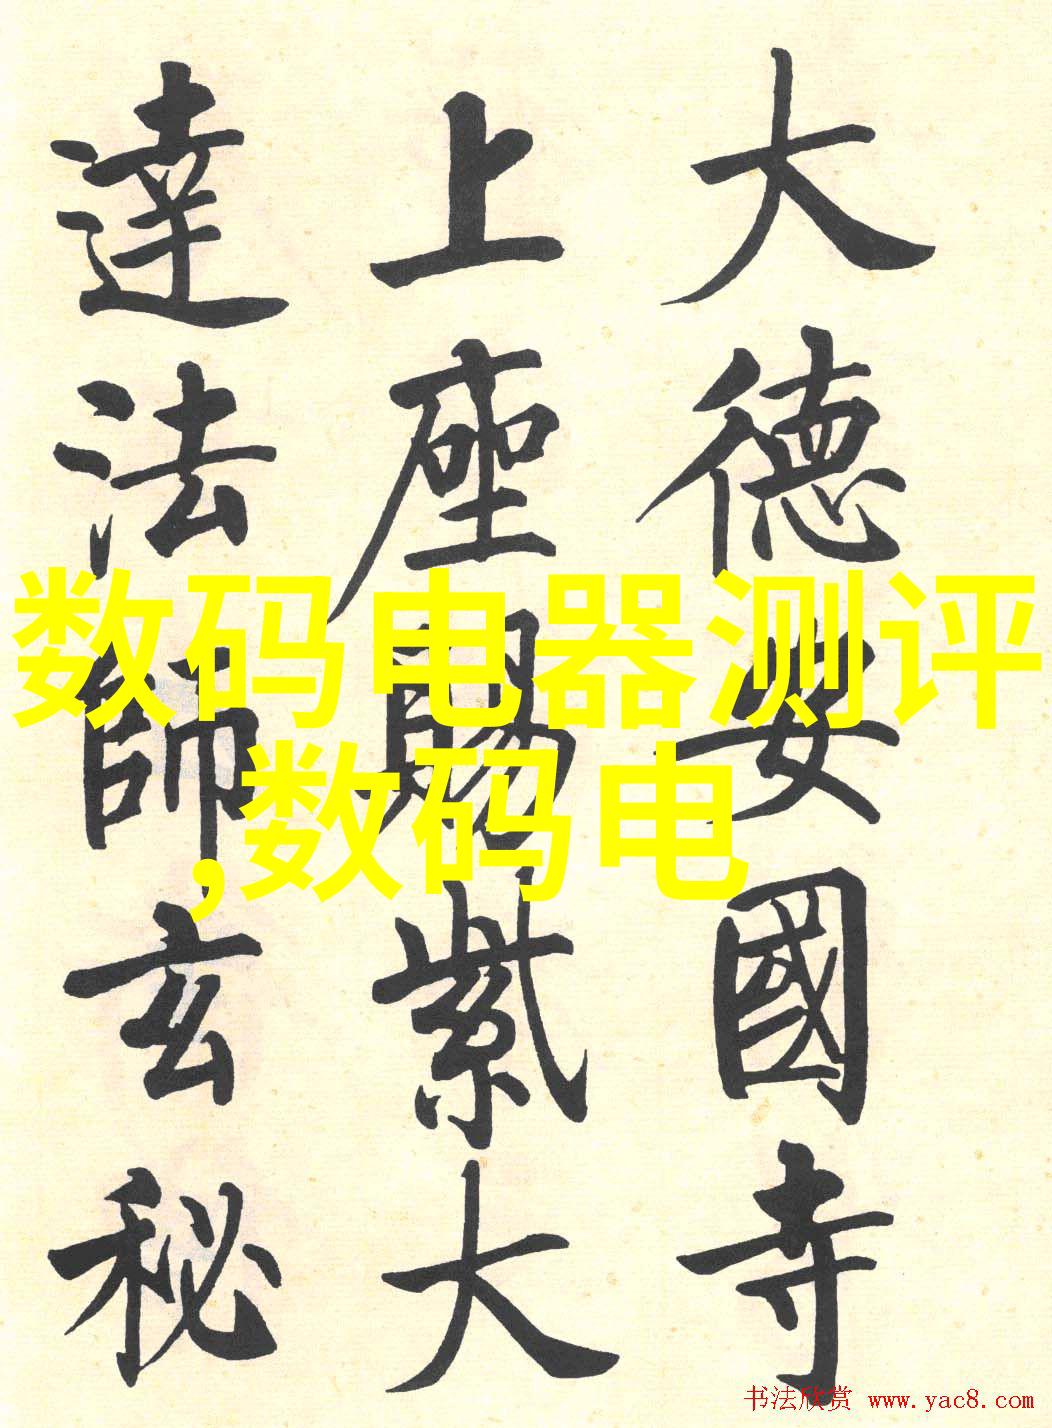 大德安國寺
上座賜紫大
達法師玄秘
数码电器测评
,数码电
书法欣赏 www.yac8.com